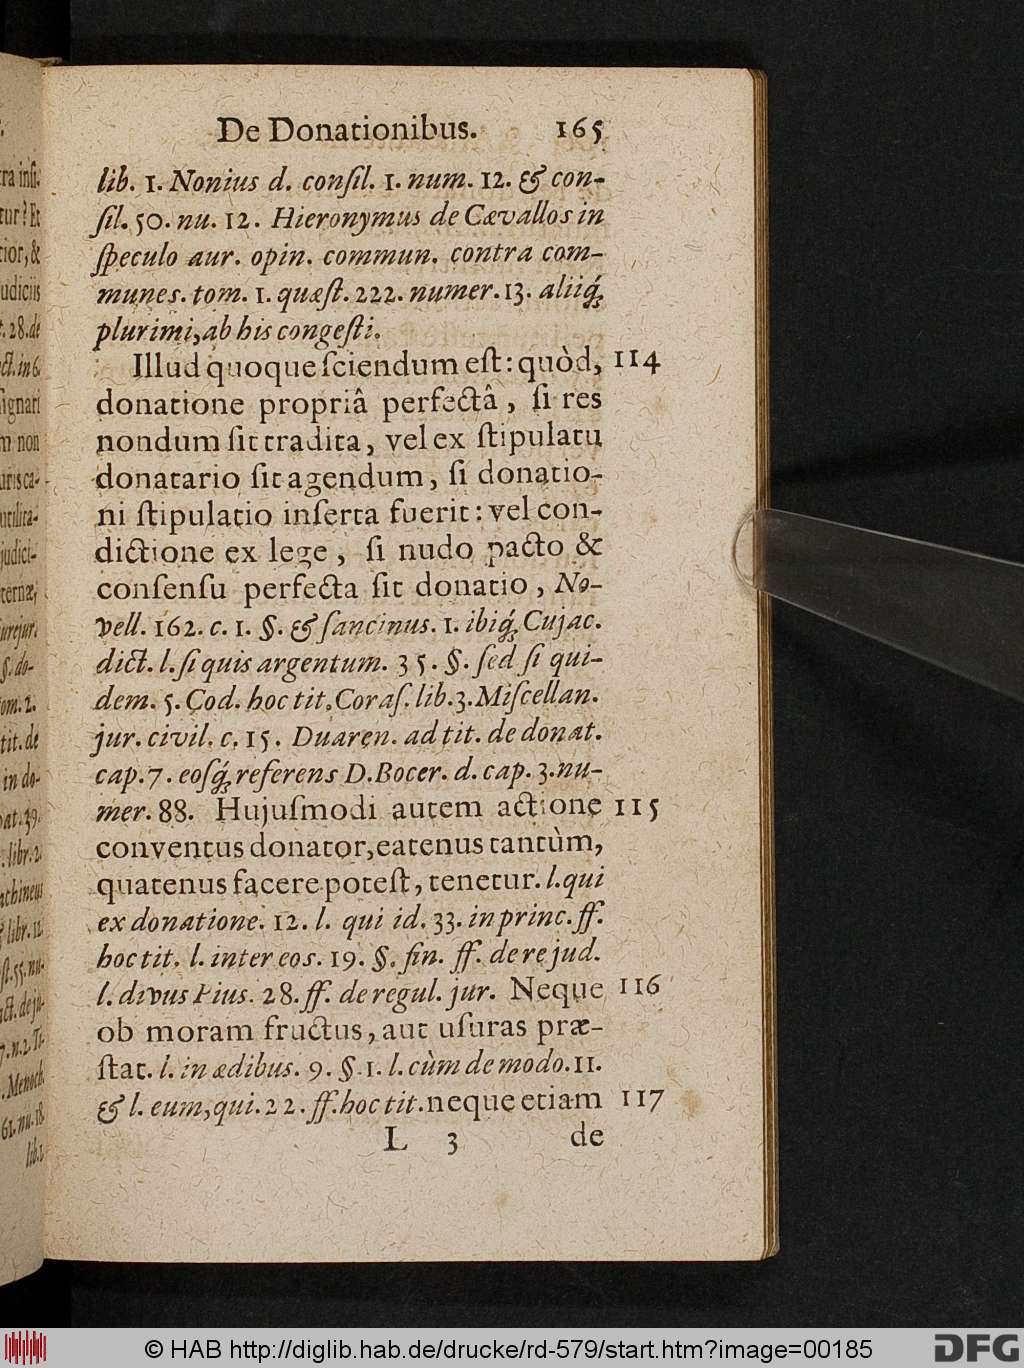 De Donationibus. 165
lib. 1. Nonius d. conſil. 1. num. 12. & con-
ſil. 50. nu. 12. Hieronymus de Cævallos in
ſpeculo aur. opin. commun. contra com-
munes. tom. 1. quæſt. 222. numer. 13. aliiq́;
plurimi, ab his congeſti.
Illud quoque ſciendum eſt: quòd, 114
donatione propriâ perfectâ, ſi res
nondum ſit tradita, vel ex ſtipulatu
donatario ſit agendum, ſi donatio-
ni ſtipulatio inſerta fuerit: vel con-
dictione ex lege, ſi nudo pacto &
conſenſu perfecta ſit donatio, No-
vell. 162. c. 1. §. & ſancinus. 1. ibiq́; Cujac.
dict. l. ſi quis argentum. 35. §. ſed ſi qui-
dem. 5. Cod. hoc tit. Coraſ. lib. 3. Miſcellan.
jur. civil. c. 15. Duaren. ad tit. de donat.
cap. 7. eoſq́; referens D. Bocer. d. cap. 3. nu-
mer. 88. Hujuſmodi autem actione 115
conventus donator, eatenus tantùm,
quatenus facere poteſt, tenetur. l. qui
ex donatione. 12. l. qui id. 33. in princ. ff.
hoc tit. l. inter eos. 19. §. fin. ff. de re jud.
l. divus Pius. 28. ff. de regul. jur. Neque 116
ob moram fructus, aut uſuras præ-
ſtat. l. in ædibus. 9. §. 1. l. cùm de modo. 11.
& l. eum, qui. 22. ff. hoc tit. neque etiam 117
L 3 de
tra inſt.
tur? Et
tior, &
udiciis
t. 28. de
ct. in 6.
ſignari
m non
uris ca-
utilita-
judici-
ternæ,
urejur.
§. do-
om. 2.
tit. de
in do-
at. 39.
libr. 2.
libr. 12.
ſt. 55. nu-
ct. de ju-
7. n. 2. Ti-
Menoch.
61. nu. 18.
lib. 1.
© HAB http://diglib.hab.de/drucke/rd-579/start.htm?image=00185
DFG